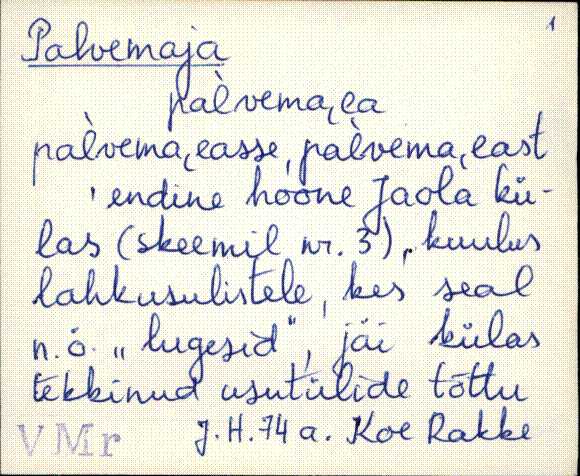 1
Palvemaja
pàlvema͔ea
pàlvema͔easse, pàlvema͔east
' endine hoone Jaola kü-
las (skeemil nr. 3), kuulus
lahkusulistele, kes seal
n.ö. „lugesid", jäi külas
tekkinud usutülide tõttu
J.H. 74 a. Koe Rakke
VMr